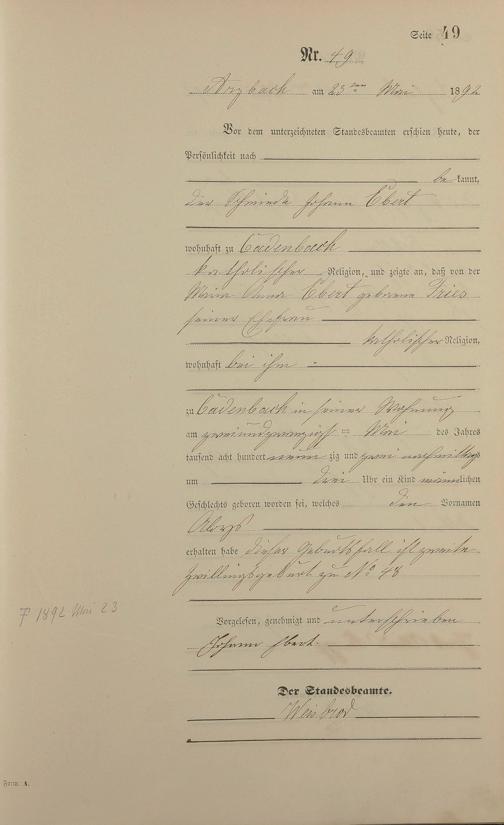 Seite 49
Nr. 49
Arzbach am 23ten Mai 1892
Vor dem unterzeichneten Standesbeamten erschien heute, der
Persönlichkeit nach
be kannt,
der Schmiede Johann Ebert
wohnhaft zu Cadenbach
katholischer Religion, und zeigte an, daß von der
Maria Anna Ebert geborene Fries
seiner Ehefrau
katholischer Religion,
wohnhaft bei ihm
zu Cadenbach in seiner Wohnung
am zweiundzwanzigsten Mai des Jahres
tausend acht hundert neun zig und zwei nachmittags
um drei Uhr ein Kind männlichen
Geschlechts geboren worden sei, welches den Vornamen
Aloys
erhalten habe dieser Geburtsfall ist zweite
Zwillingsgeburt zu No 48
† 1892 Mai 23
Vorgelesen, genehmigt und unterschrieben
Johann Ebert.
Der Standesbeamte.
Weisbrod
Form A.